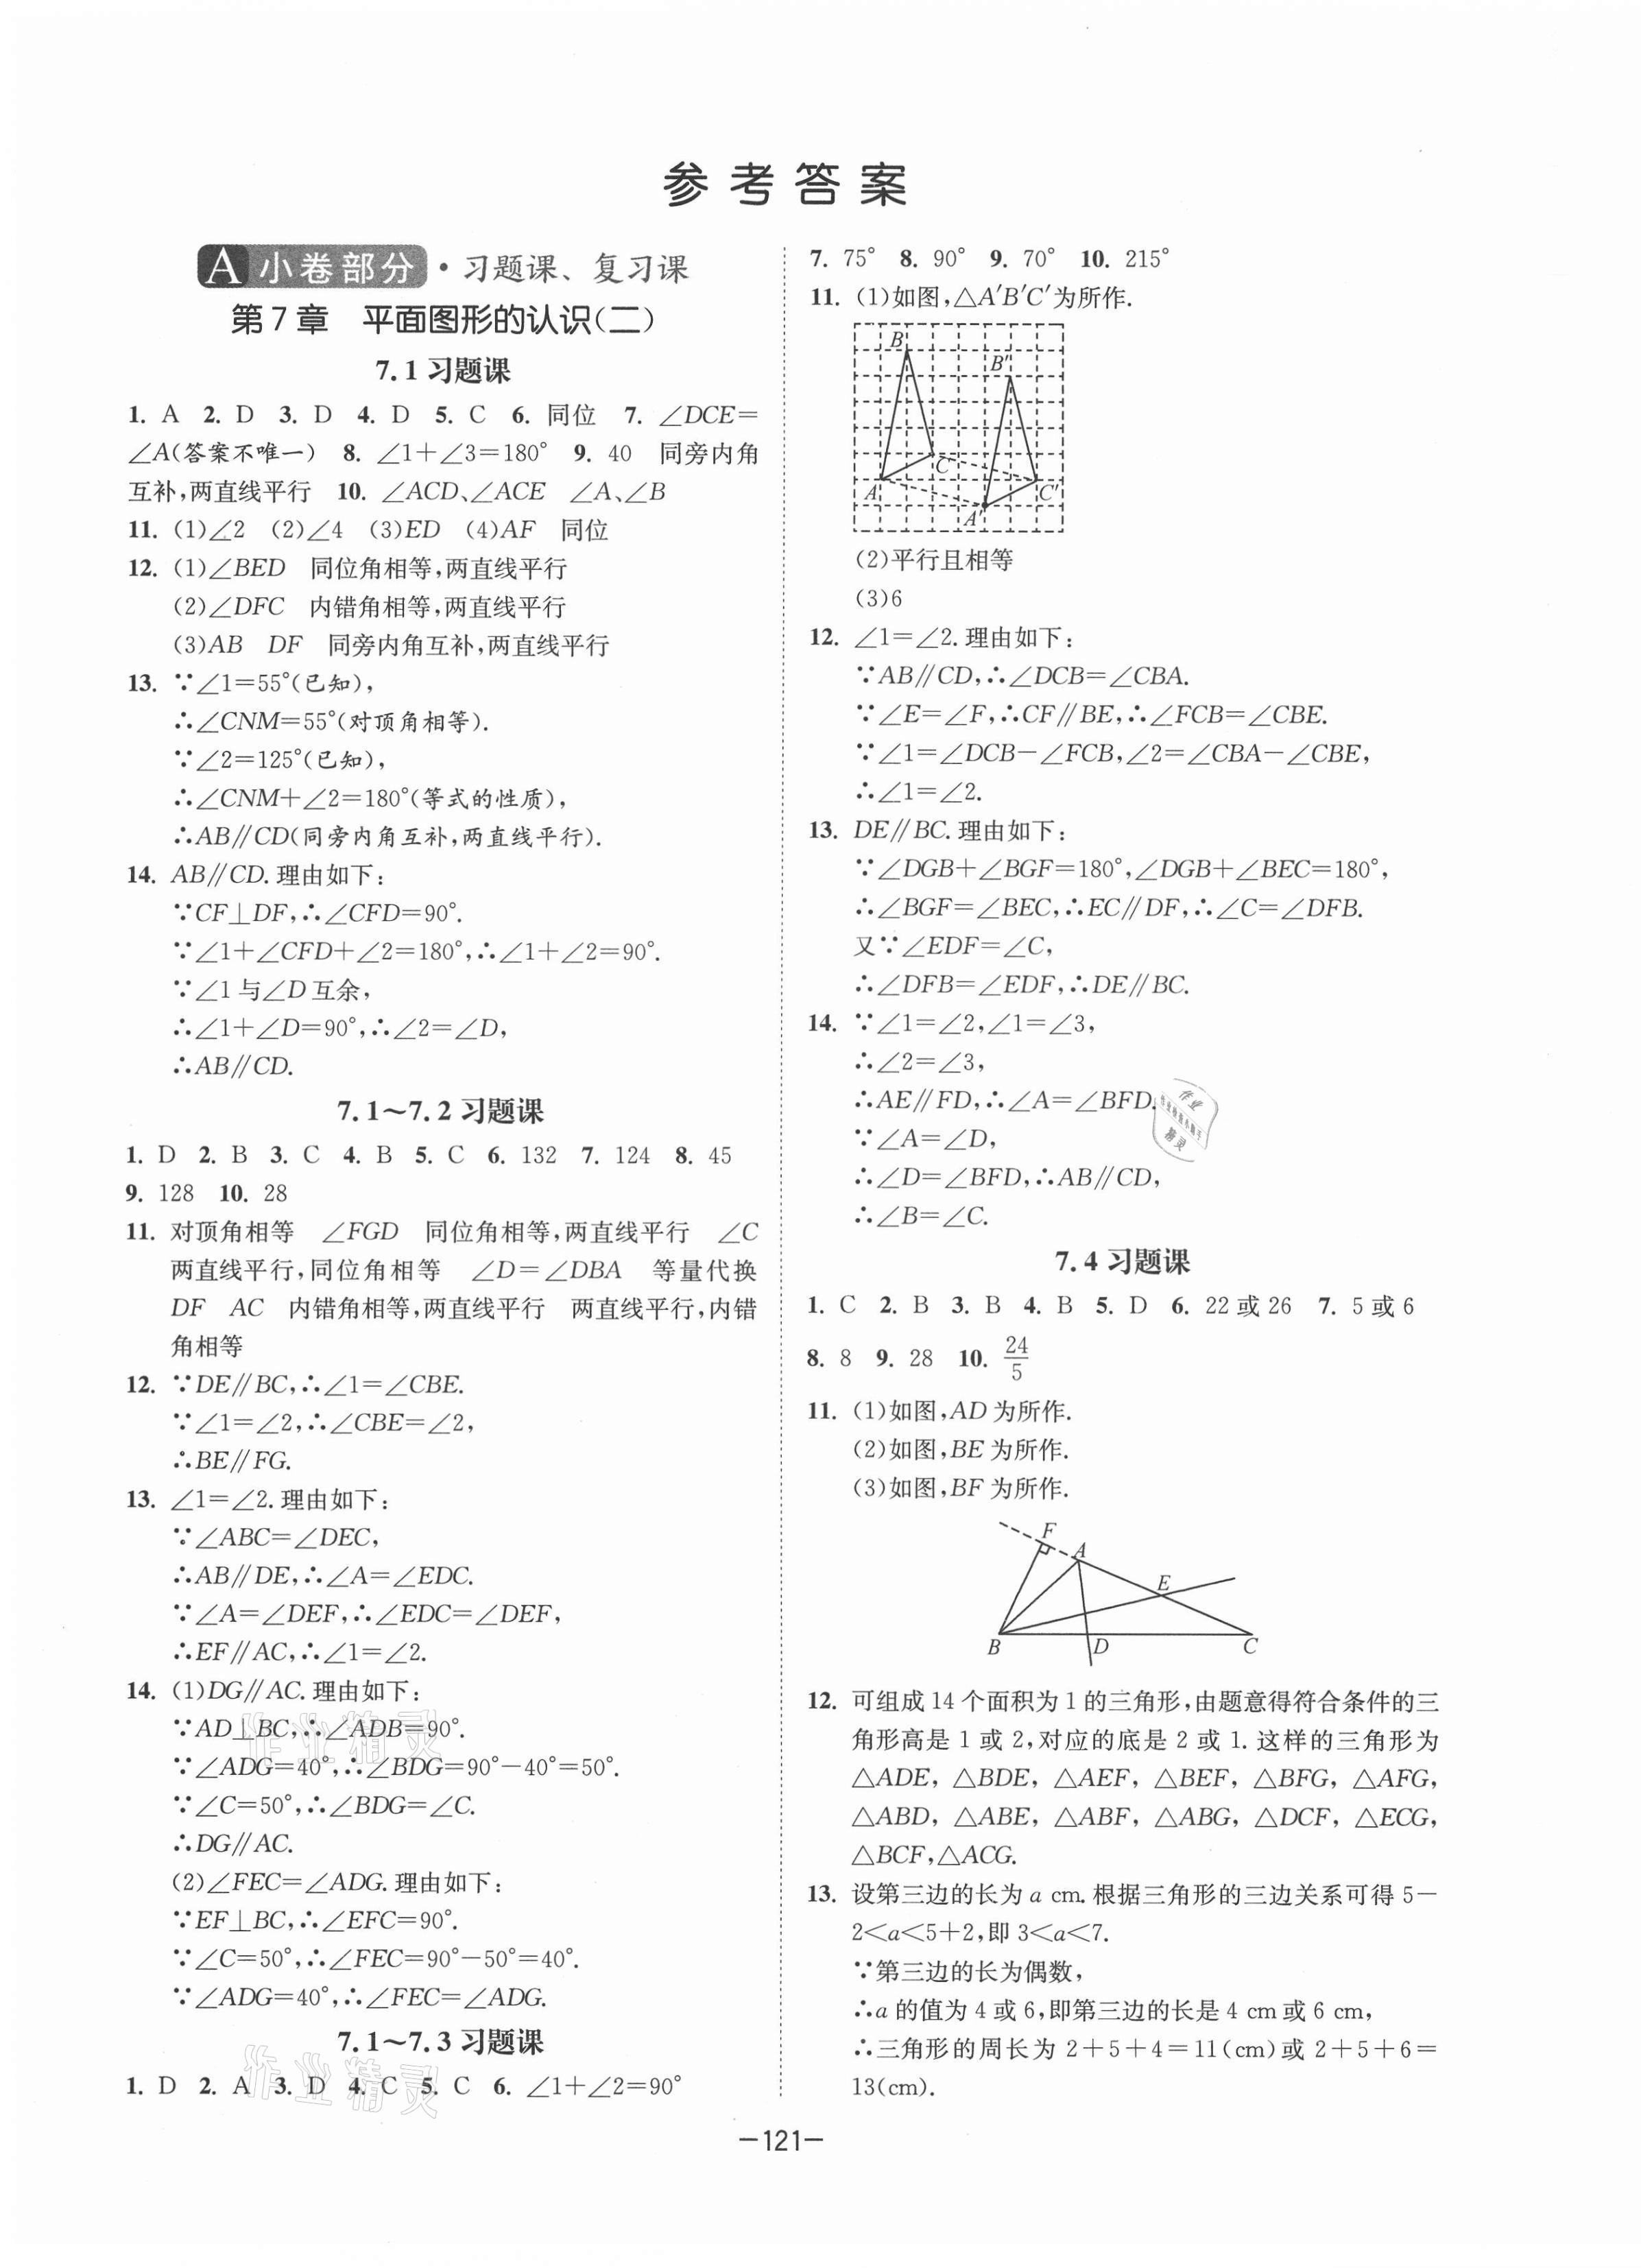 参考答案
A 小卷部分·习题课、复习课
第7章 平面图形的认识(二)
7.1习题课
1. A 2. D 3. D 4. D 5. C 6. 同位 7. ∠DCE=
∠A(答案不唯一) 8. ∠1+∠3=180° 9. 40 同旁内角
互补,两直线平行 10. ∠ACD、∠ACE ∠A、∠B
11. (1)∠2 (2)∠4 (3)ED (4)AF 同位
12. (1)∠BED 同位角相等,两直线平行
(2)∠DFC 内错角相等,两直线平行
(3)AB DF 同旁内角互补,两直线平行
13. ∵∠1=55°(已知),
∴∠CNM=55°(对顶角相等).
∵∠2=125°(已知),
∴∠CNM+∠2=180°(等式的性质),
∴AB∥CD(同旁内角互补,两直线平行).
14. AB∥CD.理由如下:
∵CF⊥DF,∴∠CFD=90°.
∵∠1+∠CFD+∠2=180°,∴∠1+∠2=90°.
∵∠1与∠D互余,
∴∠1+∠D=90°,∴∠2=∠D,
∴AB∥CD.
7.1~7.2习题课
1. D 2. B 3. C 4. B 5. C 6. 132 7. 124 8. 45
9. 128 10. 28
11. 对顶角相等 ∠FGD 同位角相等,两直线平行 ∠C
两直线平行,同位角相等 ∠D=∠DBA 等量代换
DF AC 内错角相等,两直线平行 两直线平行,内错
角相等
12. ∵DE∥BC,∴∠1=∠CBE.
∵∠1=∠2,∴∠CBE=∠2,
∴BE∥FG.
13. ∠1=∠2.理由如下:
∵∠ABC=∠DEC,
∴AB∥DE,∴∠A=∠EDC.
∵∠A=∠DEF,∴∠EDC=∠DEF,
∴EF∥AC,∴∠1=∠2.
14. (1)DG∥AC.理由如下:
∵AD⊥BC,∴∠ADB=90°.
∵∠ADG=40°,∴∠BDG=90°-40°=50°.
∵∠C=50°,∴∠BDG=∠C.
∴DG∥AC.
(2)∠FEC=∠ADG.理由如下:
∵EF⊥BC,∴∠EFC=90°.
∵∠C=50°,∴∠FEC=90°-50°=40°.
∵∠ADG=40°,∴∠FEC=∠ADG.
7.1~7.3习题课
1. D 2. A 3. D 4. C 5. C 6. ∠1+∠2=90°
作业精灵
作业精灵
7. 75° 8. 90° 9. 70° 10. 215°
11. (1)如图,△A′B′C′为所作.
B
B′
C
A
C′
A′
(2)平行且相等
(3)6
12. ∠1=∠2.理由如下:
∵AB∥CD,∴∠DCB=∠CBA.
∵∠E=∠F,∴CF∥BE,∴∠FCB=∠CBE.
∵∠1=∠DCB-∠FCB,∠2=∠CBA-∠CBE,
∴∠1=∠2.
13. DE∥BC.理由如下:
∵∠DGB+∠BGF=180°,∠DGB+∠BEC=180°,
∴∠BGF=∠BEC,∴EC∥DF,∴∠C=∠DFB.
又∵∠EDF=∠C,
∴∠DFB=∠EDF,∴DE∥BC.
14. ∵∠1=∠2,∠1=∠3,
∴∠2=∠3,
∴AE∥FD,∴∠A=∠BFD.
∵∠A=∠D,
∴∠D=∠BFD,∴AB∥CD,
∴∠B=∠C.
作业
精灵
7.4习题课
1. C 2. B 3. B 4. B 5. D 6. 22或26 7. 5或6
8. 8 9. 28 10. 24/5
11. (1)如图,AD为所作.
(2)如图,BE为所作.
(3)如图,BF为所作.
F
A
E
B D C
12. 可组成14个面积为1的三角形,由题意得符合条件的三
角形高是1或2,对应的底是2或1.这样的三角形为
△ADE, △BDE, △AEF, △BEF, △BFG, △AFG,
△ABD, △ABE, △ABF, △ABG, △DCF, △ECG,
△BCF,△ACG.
13. 设第三边的长为a cm.根据三角形的三边关系可得5-
2<a<5+2,即3<a<7.
∵第三边的长为偶数,
∴a的值为4或6,即第三边的长是4 cm或6 cm,
∴三角形的周长为2+5+4=11(cm)或2+5+6=
13(cm).
—121—